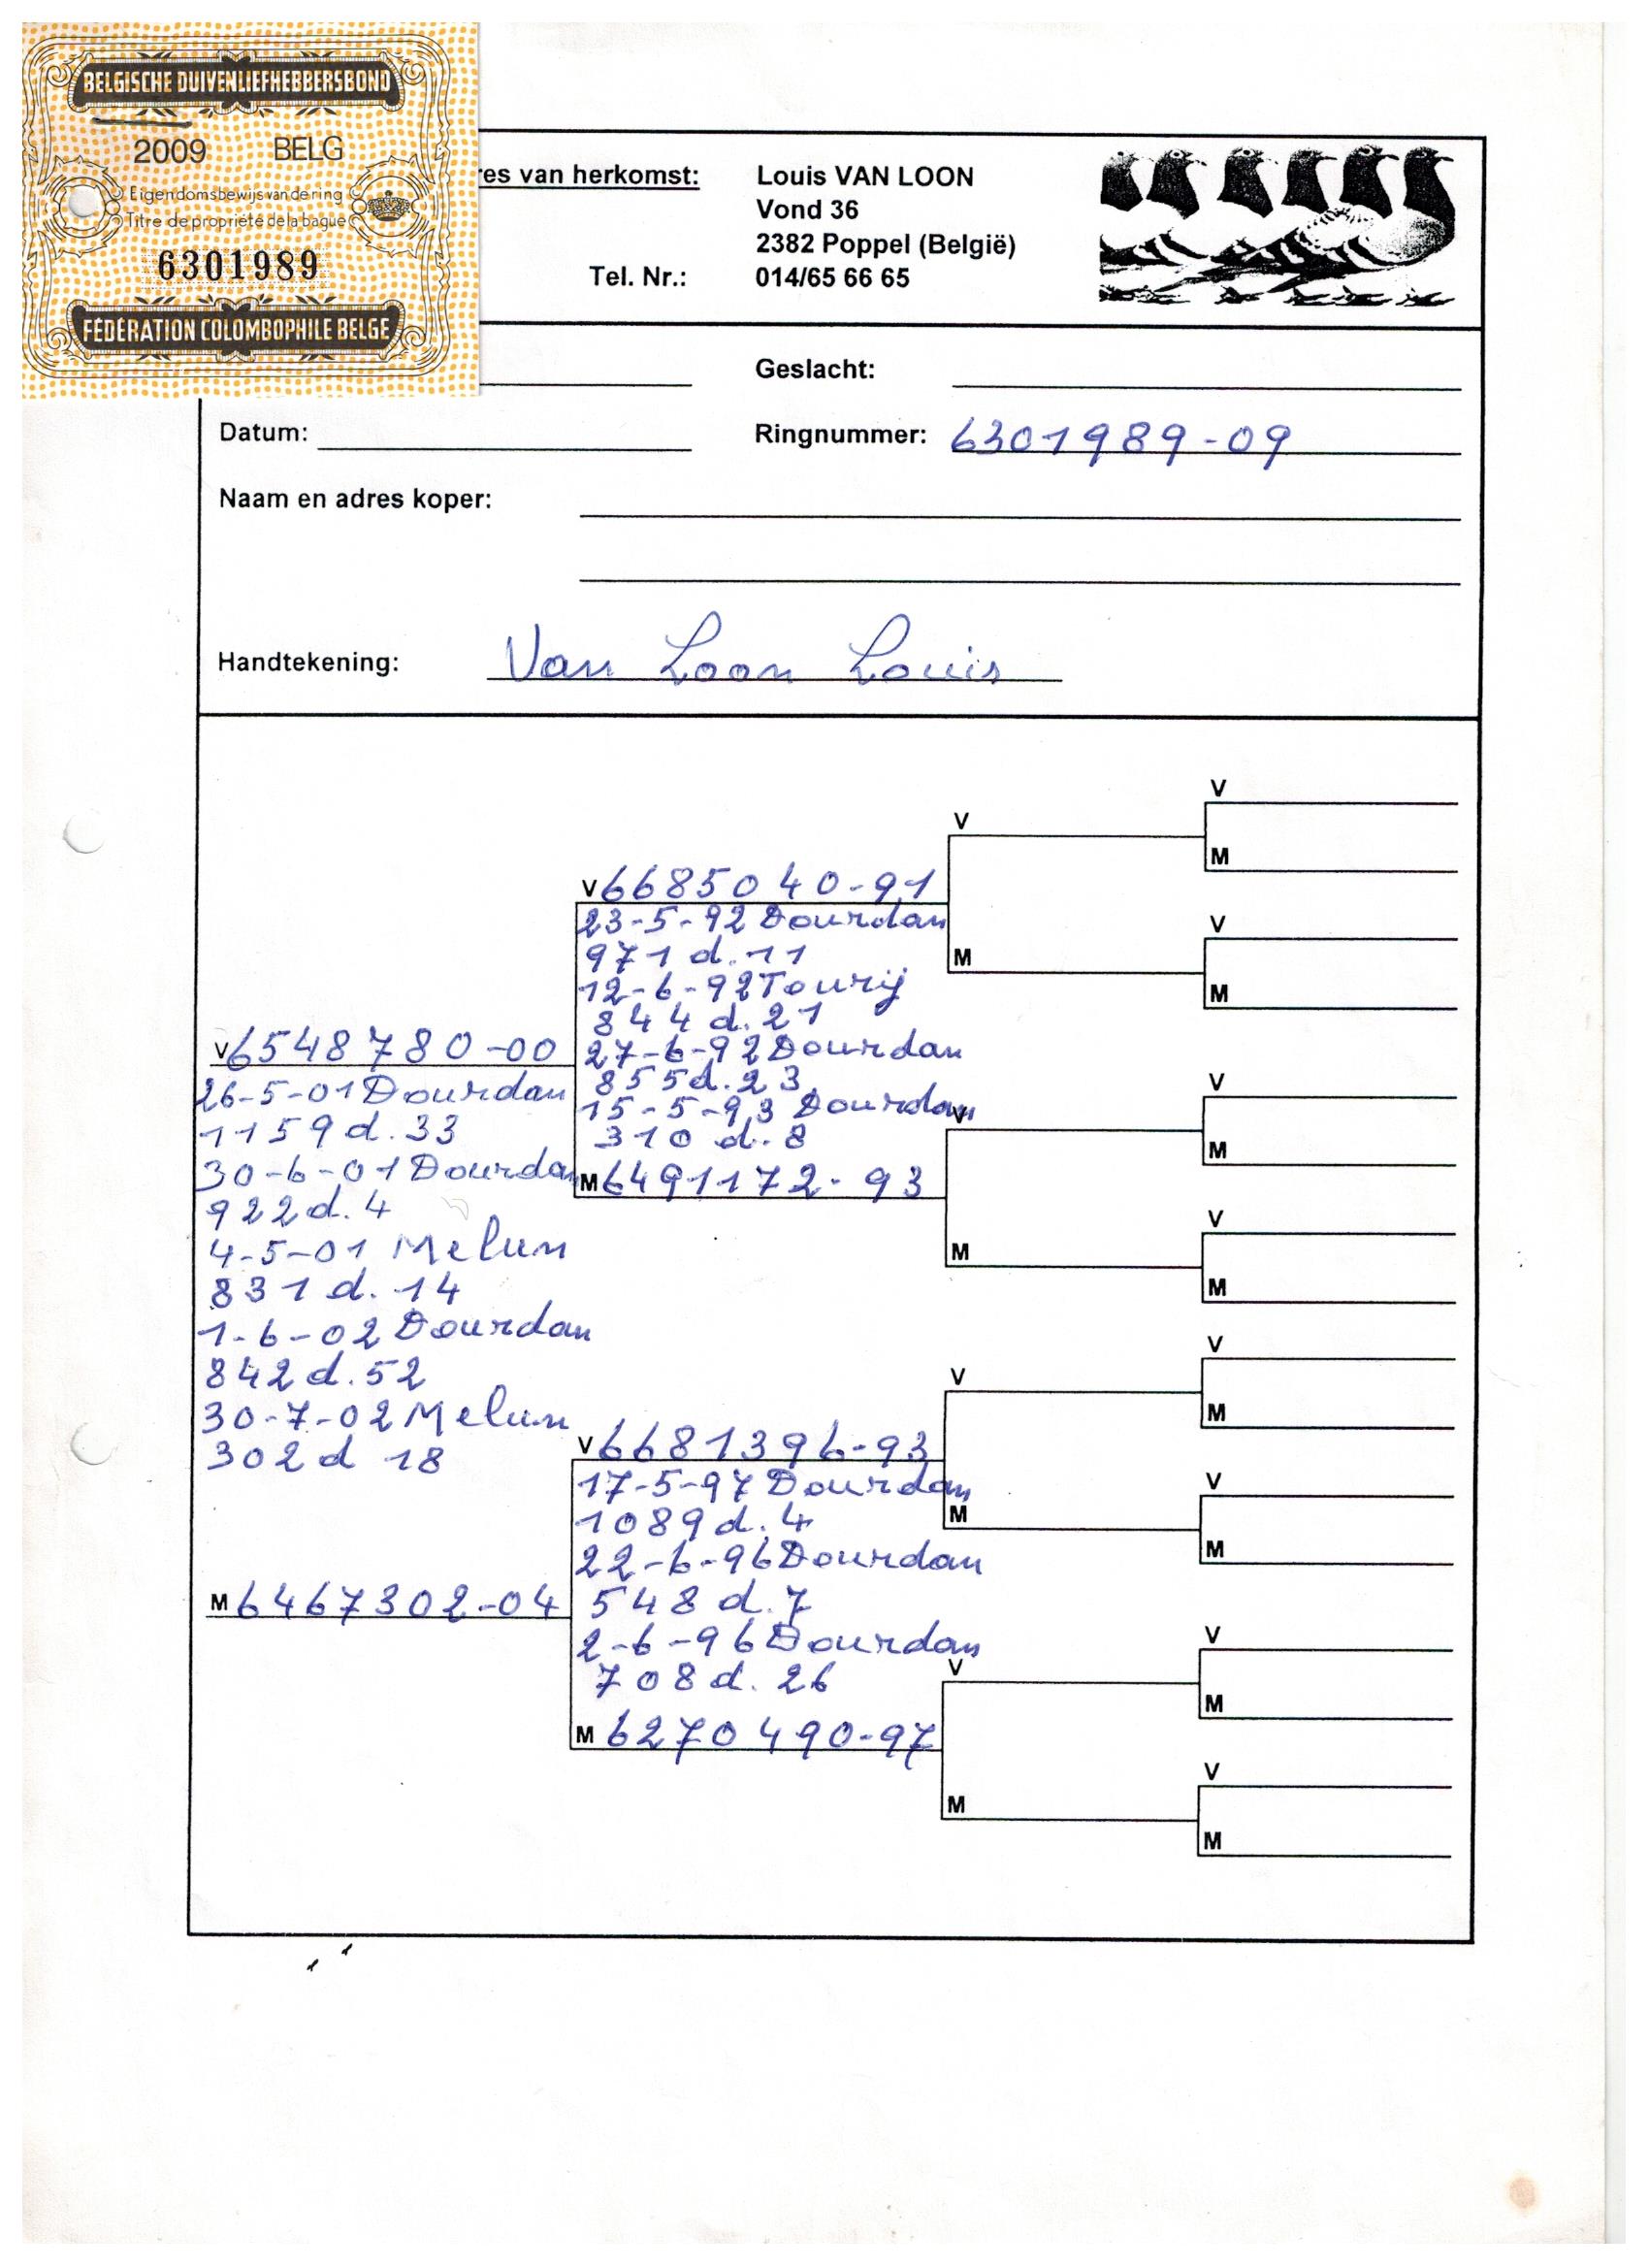 BELGISCHE DUIVENLIEFHEBBERSBOND
2009 BELG
Eigendomsbewijs van de ring
Titre de propriété de la bague
6301989
FÉDÉRATION COLOMBOPHILE BELGE
res van herkomst: Louis VAN LOON
Vond 36
2382 Poppel (België)
Tel. Nr.: 014/65 66 65
Geslacht:
Datum: Ringnummer: 6301989-09
Naam en adres koper:
Handtekening: Van Loon Louis
V 6548780-00
26-5-01 Dourdan
1159 d. 33
30-6-01 Dourdan
922 d. 4
4-5-01 Melun
831 d. 14
1-6-02 Dourdan
842 d. 52
30-7-02 Melun
302 d 18
M 6467302-04
V 6685040-91
23-5-92 Dourdan
971 d. 11
12-6-92 Tourij
844 d. 21
27-6-92 Dourdan
855 d. 23
15-5-93 Dourdan
310 d. 8
M 6491172-93
V 6681396-93
17-5-97 Dourdan
1089 d. 4
22-6-96 Dourdan
548 d. 7
2-6-96 Dourdan
708 d. 26
M 6270490-97
V
M
V
M
V
M
V
M
V
M
V
M
V
M
V
M
V
M
V
M
V
M
V
M